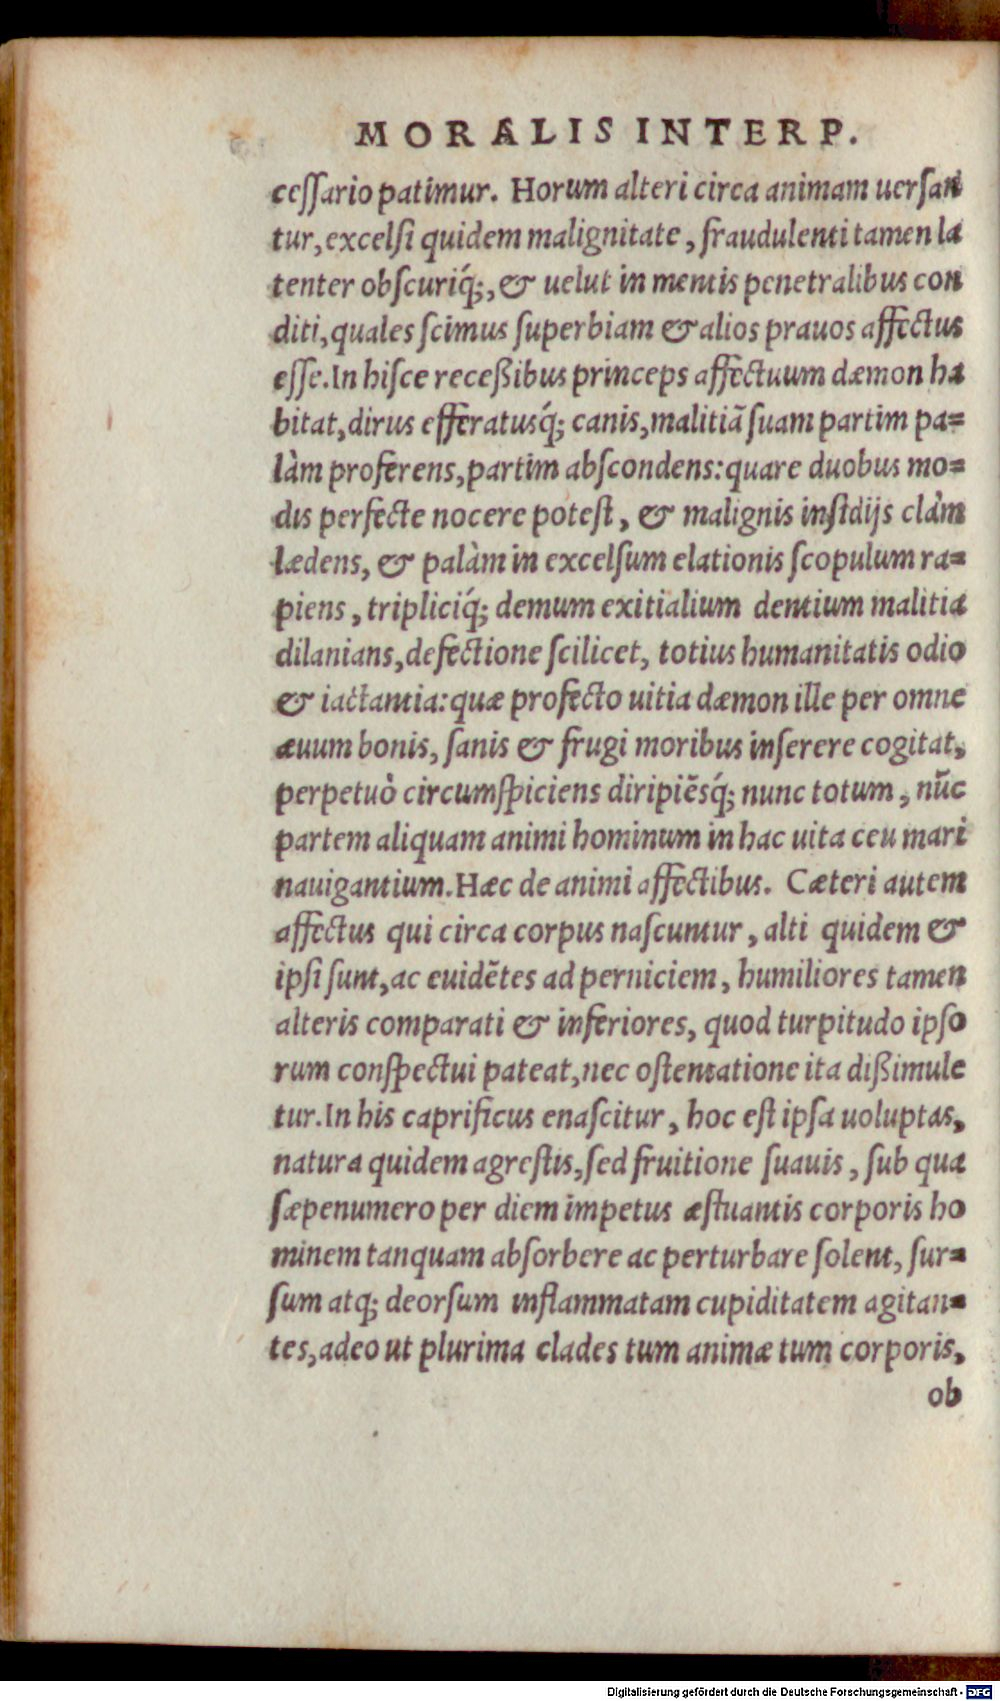 MORALIS INTERP.
ceſſario patimur. Horum alteri circa animam uerſan
tur, excelſi quidem malignitate, fraudulenti tamen la
tenter obſcuriq́;, & uelut in mentis penetralibus con
diti, quales ſcimus ſuperbiam & alios prauos affectus
eſſe. In hiſce receßibus princeps affectuum dæmon ha
bitat, dirus efferatusq́; canis, malitiã ſuam partim pa=
làm proferens, partim abſcondens: quare duobus mo=
dis perfecte nocere poteſt, & malignis inſidijs clàm
lædens, & palàm in excelſum elationis ſcopulum ra=
piens, tripliciq́; demum exitialium dentium malitia
dilanians, defectione ſcilicet, totius humanitatis odio
& iactantia: quæ profecto uitia dæmon ille per omne
æuum bonis, ſanis & frugi moribus inſerere cogitat,
perpetuò circumſpiciens diripiẽsq́; nunc totum, nũc
partem aliquam animi hominum in hac uita ceu mari
nauigantium. Hæc de animi affectibus. Cæteri autem
affectus qui circa corpus naſcuntur, alti quidem &
ipſi ſunt, ac euidẽtes ad perniciem, humiliores tamen
alteris comparati & inferiores, quod turpitudo ipſo
rum conſpectui pateat, nec oſtentatione ita dißimule
tur. In his caprificus enaſcitur, hoc eſt ipſa uoluptas,
natura quidem agreſtis, ſed fruitione ſuauis, ſub qua
ſæpenumero per diem impetus æſtuantis corporis ho
minem tanquam abſorbere ac perturbare ſolent, ſur=
ſum atq; deorſum inflammatam cupiditatem agitan=
tes, adeo ut plurima clades tum animæ tum corporis,
ob
Digitalisierung gefördert durch die Deutsche Forschungsgemeinschaft - DFG